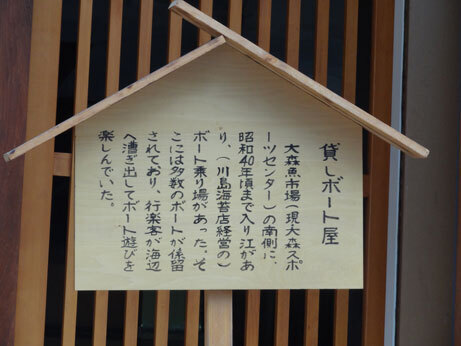 貸しボート屋
大森魚市場(現大森スポ
ーツセンター)の南側に、
昭和40年頃まで入り江があ
り、(川島海苔店経営の)
ボート乗り場があった。そ
こには多数のボートが係留
されており、行楽客が海辺
へ漕ぎ出してボート遊びを
楽しんでいた。